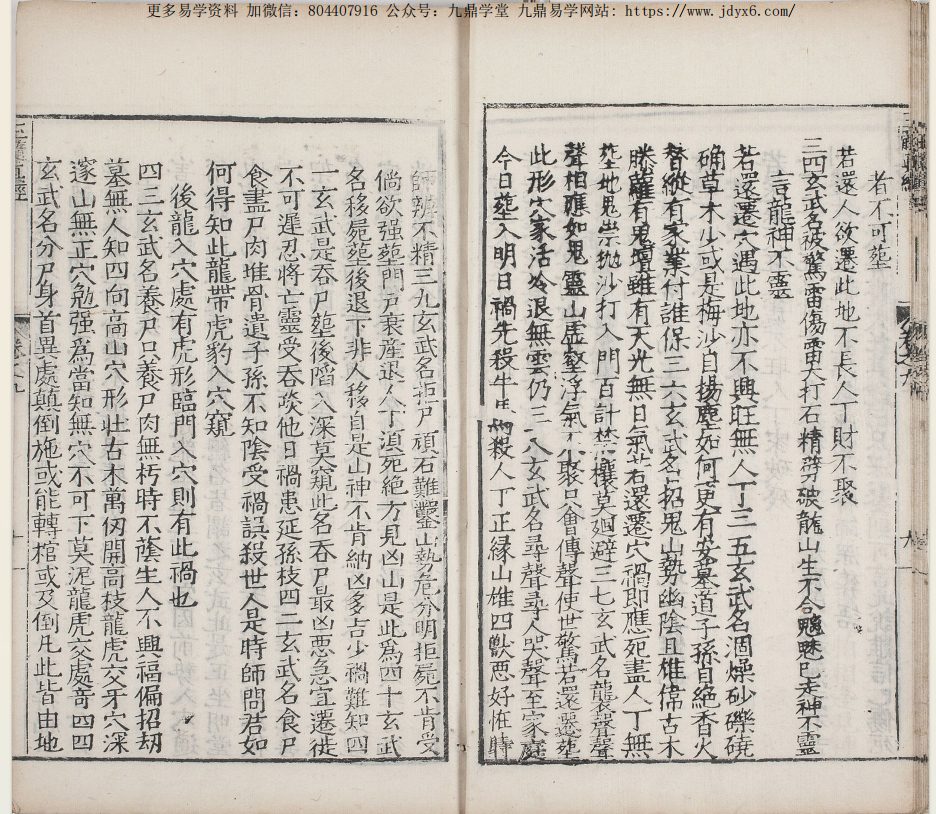 更多易学资料 加微信：804407916 公众号：九鼎学堂 九鼎易学网站：https://www.jdyx6.com/
者不可塟
若還人欲還此地不長人丁財不聚
三四玄武名被驚雷傷雷大打石精劈破龍山生不合魑魅巳走神不靈
言龍神不靈
若還遷穴遇此地亦不興旺無人丁三五玄武名涸燥砂礫磽
确草木少或是梅沙自揚塵如何更有安墓道子孫自絶香火
替縱有家業付誰保三六玄武名招鬼山勢幽陰且雄偉古木
滕蘿有鬼壇雖有天光無日氣若還遷穴禍即應死盡人丁無
塟地鬼祟抛沙打入門百計禁攘莫廻避三七玄武名襲聲聲
聲相應如鬼靈山虚壑浮氣不聚只會傳聲使世驚若還遷塟
此形穴家活冷退無雲仍三八玄武名尋聲尋人哭聲至家庭
今日塟入明日禍先殺牛馬殺人丁正縁山雄四獸惡好恠時
師辨不精三九玄武名拒尸頑石難鑿山勢危分明拒屍不肯受
倘欲強塟門戸衰産退人丁滇死絶方見凶山是此為四十玄武
名移屍塟後退下非人移自是山神不肯納凶多吉少禍難知四
一玄武是吞尸塟後陷入深莫窺此名吞尸最凶悪急宜遷徙
不可遲忍將亡靈受吞啖他日禍患延孫枝四二玄武名食尸
食盡尸肉堆骨遺子孫不知陰受禍誤殺世人是時師問君如
何得知此龍帶虎豹入穴窺
後龍入穴處有虎形臨門入穴則有此禍也
四三玄武名養尸只養尸肉無朽時不蔭生人不興福偏招刼
墓無人知四向高山穴形壮古木萬仭開高枝龍虎交牙穴深
邃山無正穴勉强爲當知無穴不可下莫泥龍虎交處竒四四
玄武名分尸身首異處顛倒施或能轉棺或及倒凡此皆由地